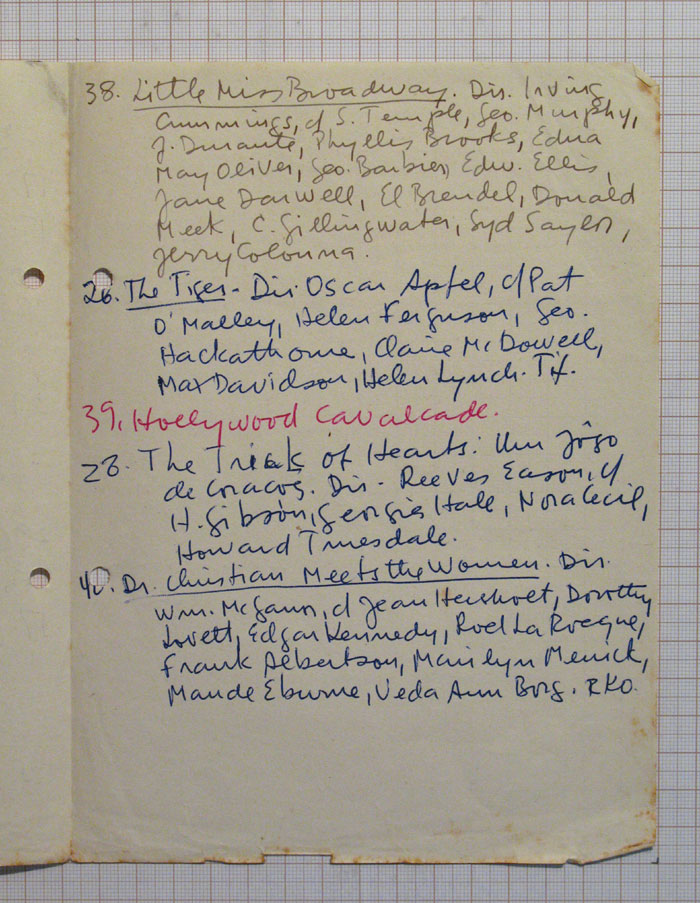 38. Little Miss Broadway. Dir. Irving
Cummings, c/ S. Temple, Geo. Murphy,
J. Durante, Phyllis Brooks, Edna
May Oliver, Geo. Barbier, Edw. Ellis,
Jane Darwell, El Brendel, Donald
Meek, C. Gillingwater, Syd Saylor,
Jerry Colonna.
26. The Tiger - Dir. Oscar Apfel, c/ Pat
O'Malley, Helen Ferguson, Geo.
Hackathorne, Claire McDowell,
Max Davidson, Helen Lynch. Tif.
39. Hollywood Cavalcade.
28. The Trick of Hearts. Um Jôgo
de Coraçoes. Dir - Reeves Eason, c/
H. Gibson, Georgia Hale, Nora Cecil,
Howard Truesdale.
40. Dr. Christian Meets the Women. Dir.
Wm. McGann, c/ Jean Hersholt, Dorothy
Lovett, Edgar Kennedy, Rod La Rocque,
Frank Albertson, Marilyn Merrick,
Maude Eburne, Veda Ann Borg. RKO.